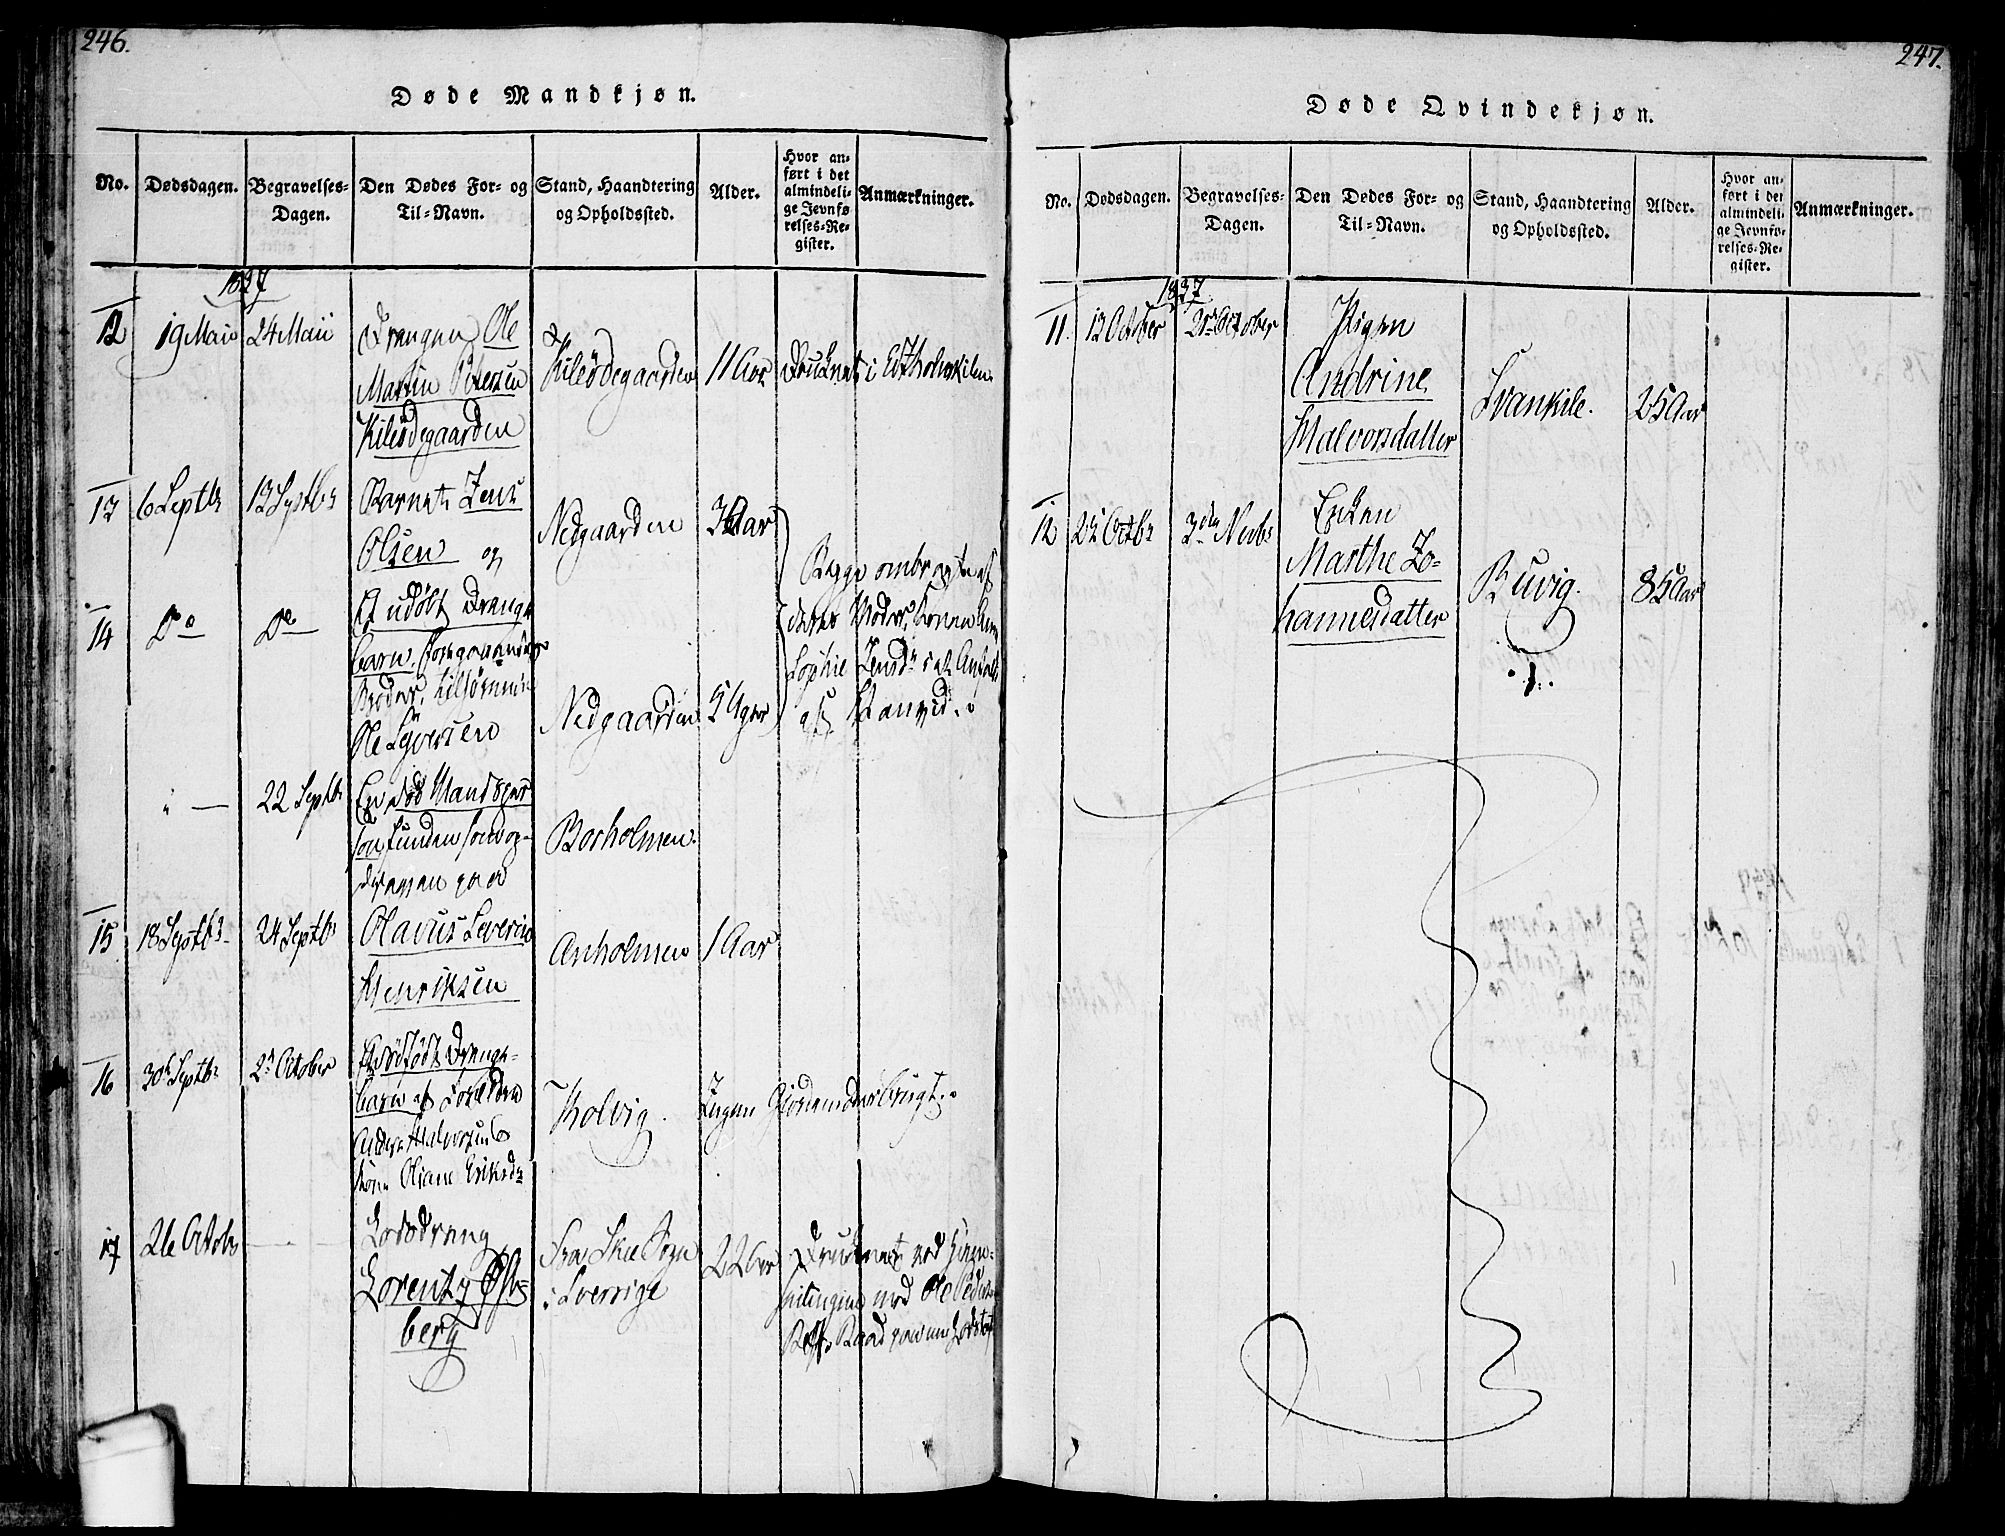 246.
Døde Mandkjøn.
No.
Dødsdagen.
Begravelses-
Dagen.
Den Dødes For- og
Til-Navn.
Stand, Haandtering
og Opholdssted.
Alder.
Hvor an-
ført i det
almindeli-
ge Jevnfø-
relses-Re-
gister.
Anmærkninger.
1837
12
19 Maii
24 Maii
Drengen Ole
Martin Petersen
Kileødegaarden
Kileødegaarden
11 Aar
Druknet i
13
6 Septbr
13 Septbr
Barnet Jens
Olsen og
Nedgaarden
3 Aar
14
Do
Do
Et udøbt Drenge
barn, foregaaendes
Broder,
Ole Syversen
Nedgaarden
5 Uger
Begge ombragte af
deres Moder, Konen Anne
Sophie Jensdr i et Anfald
af Vanvid.
22 Septbr
En død Mandsper
son funden
Borholmen.
15
18 Septbr
24 Septbr
Olavus Severin
Henriksen
Asholmen
1 Aar
16
30 Septbr
2 October
Et dødfødt Drenge-
barn af Forældre
Anders Halvorsen &
Kone Oliane Eriksdr
Kolvig.
Ingen Gjordemoder brugt.
17
26 Octobr
Lodsdreng
Lorentz Øst-
berg
Fra Skee Sogn
i Sverrige
22 Aar
Druknet ved
med Ole
247.
Døde Qvindekjøn.
No.
Dødsdagen.
Begravelses-
Dagen.
Den Dødes For- og
Til-Navn.
Stand, Haandtering
og Opholdssted.
Alder.
Hvor an-
ført i det
almindeli-
ge Jevnfø-
relses-Re-
gister.
Anmærkninger.
1837
11.
13 October
October
Pigen
Andrine
Halvorsdatter
Svankile.
25 Aar
12
Octbr
3 Novbr
Enken
Marthe Jo-
hannesdatter
Buvig.
85 Aar